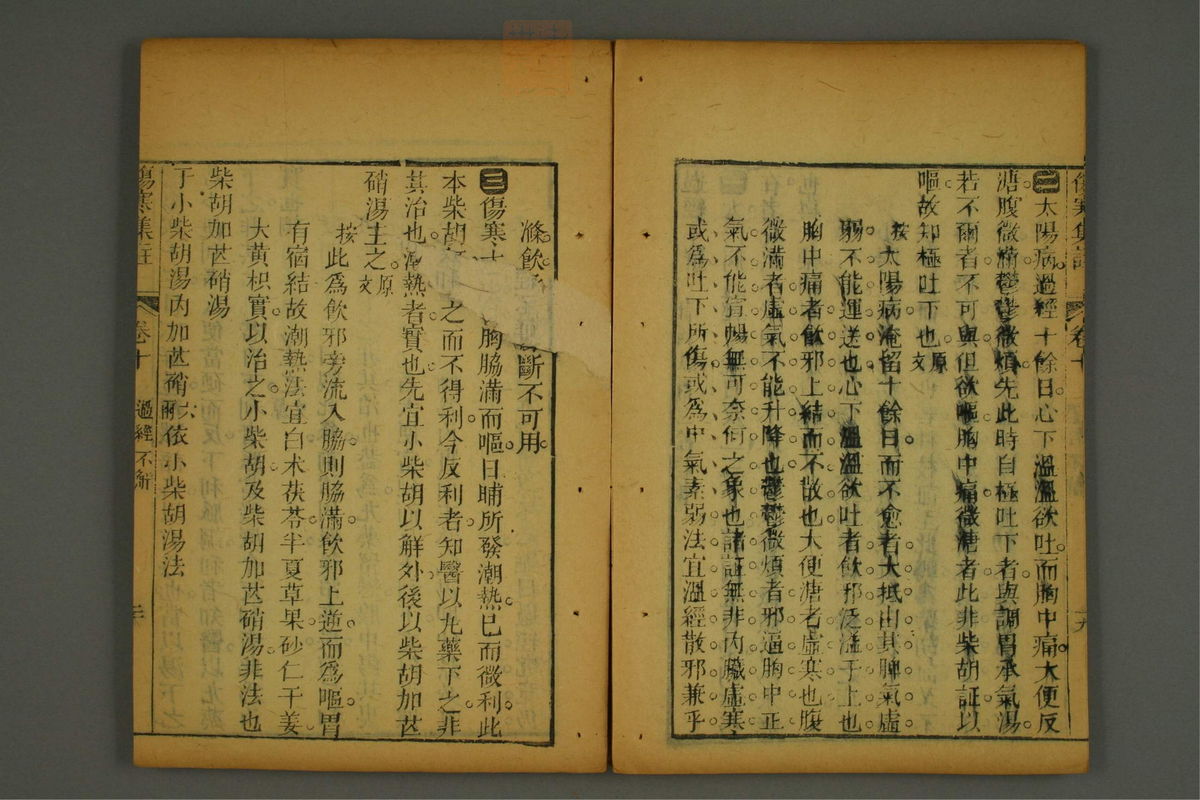 二太陽病過經十餘日心下溫溫欲吐而胸中痛大便反
溏腹微滿鬱鬱微煩先此時自極吐下者與調胃承氣湯
若不爾者不可與但欲嘔胸中痛微溏者此非柴胡証以
嘔故知極吐下也原文
按太陽病淹留十餘日而不愈者大抵由其脾氣虛
弱不能運送也心下溫溫欲吐者飲邪泛溢于上也
胸中痛者飲邪上結而不散也大便溏者虛寒也腹
微滿者虛氣不能升降也鬱鬱微煩者邪逼胸中正
氣不能宣暢無可奈何之象也諸証無非內臟虛寒
或爲吐下所傷或爲中氣素弱法宜溫經散邪兼乎
滌飲
斷不可用
三傷寒十
胸脇滿而嘔日晡所發潮熱已而微利此
本柴胡
之而不得利今反利者知醫以丸藥下之非
其治也潮熱者實也先宜小柴胡以解外後以柴胡加芒
硝湯主之原文
按此爲飲邪旁流入脇則脇滿飲邪上逆而爲嘔胃
有宿結故潮熱法宜白术茯苓半夏草果砂仁干姜
大黃枳實以治之小柴胡及柴胡加芒硝湯非法也
柴胡加芒硝湯
于小柴胡湯內加芒硝六兩依小柴胡湯法
傷寒集註
卷十
過經不解